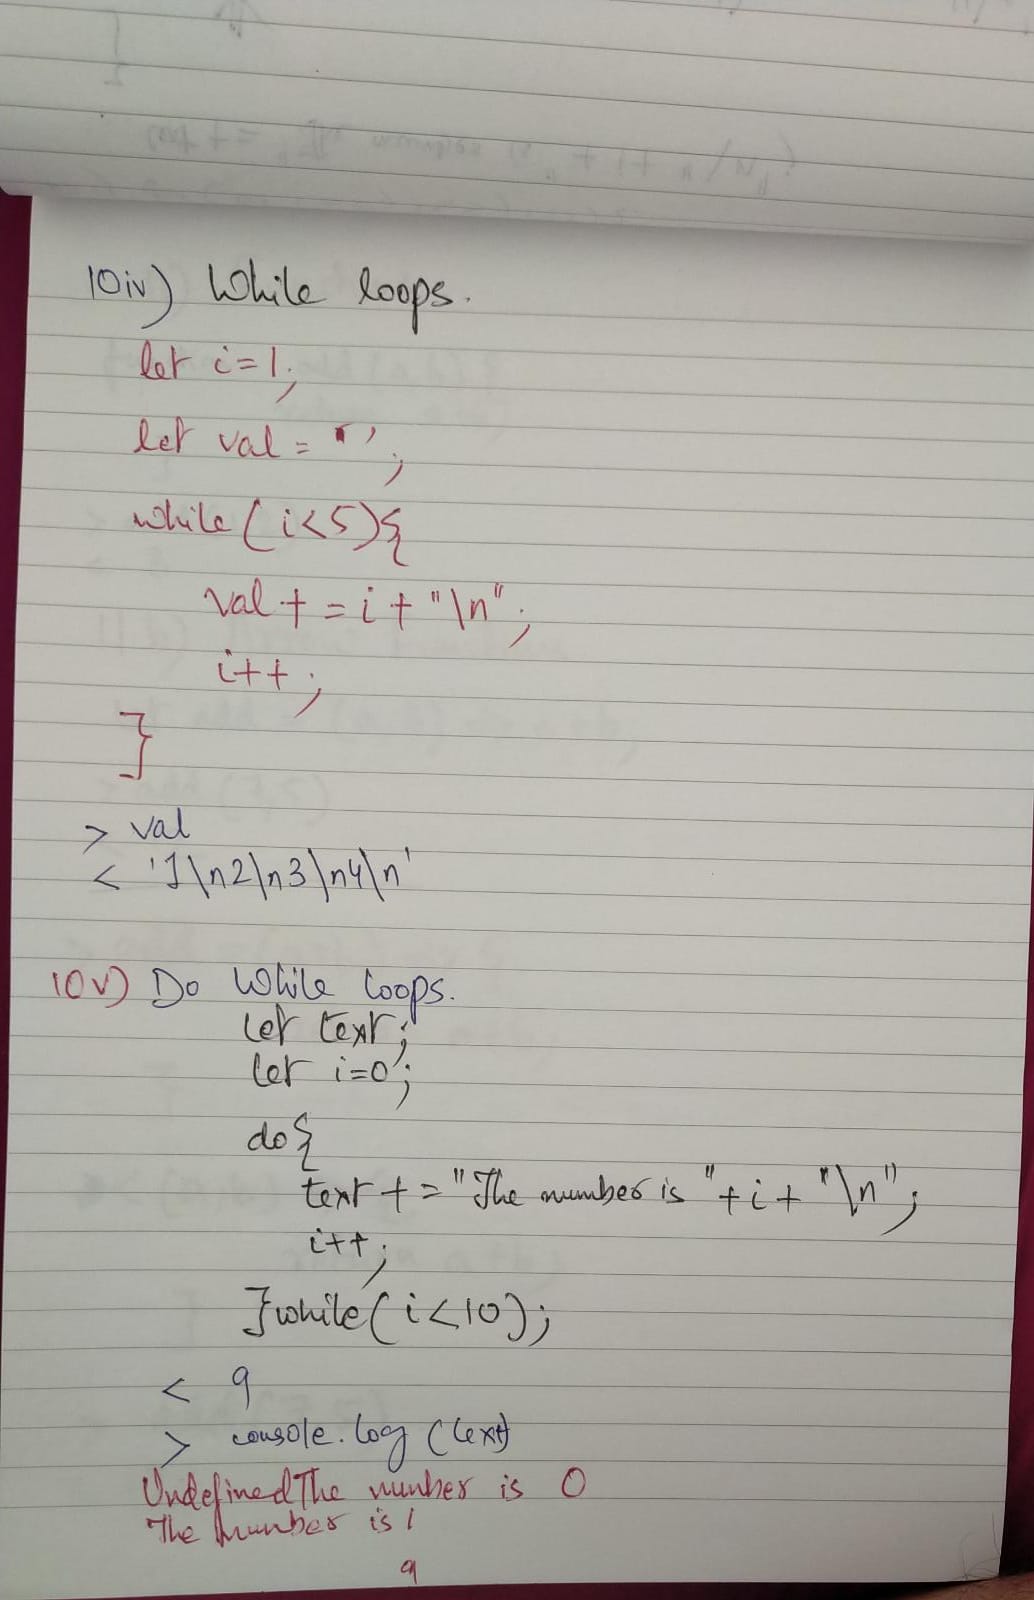 10iv) While loops.
let i=1;
let val = '';
while(i<5){
val+=i+"\n";
i++;
}
> val
< '1\n2\n3\n4\n'
10v) Do While loops.
let text;
let i=0;
do{
text+="The number is "+i+"\n";
i++;
}while(i<10);
< 9
> console.log(text)
UndefinedThe number is 0
The number is 1
9